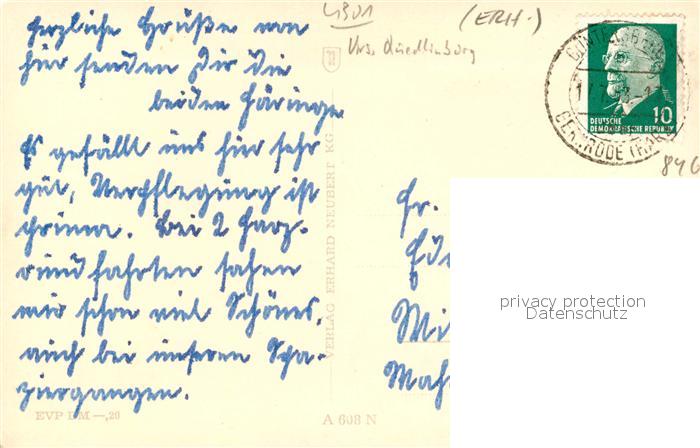 4301
(ERH.)
Krs. Quedlinburg
herzliche Grüße von
hier senden Dir die
beiden Häringe
Es gefällt uns hier sehr
gut, Verpflegung ist
prima. Bei 2 Harz-
rundfahrten sahen
wir schon viel Schönes,
auch bei unseren Spa-
ziergangen.
EVP DM —,20
VERLAG ERHARD NEUBERT KG
A 608 N
GÜNTERSBERGE
GERNRODE (HARZ)
10
DEUTSCHE
DEMOKRATISCHE REPUBLIK
846
Fr.
Mi
Mah
privacy protection
Datenschutz